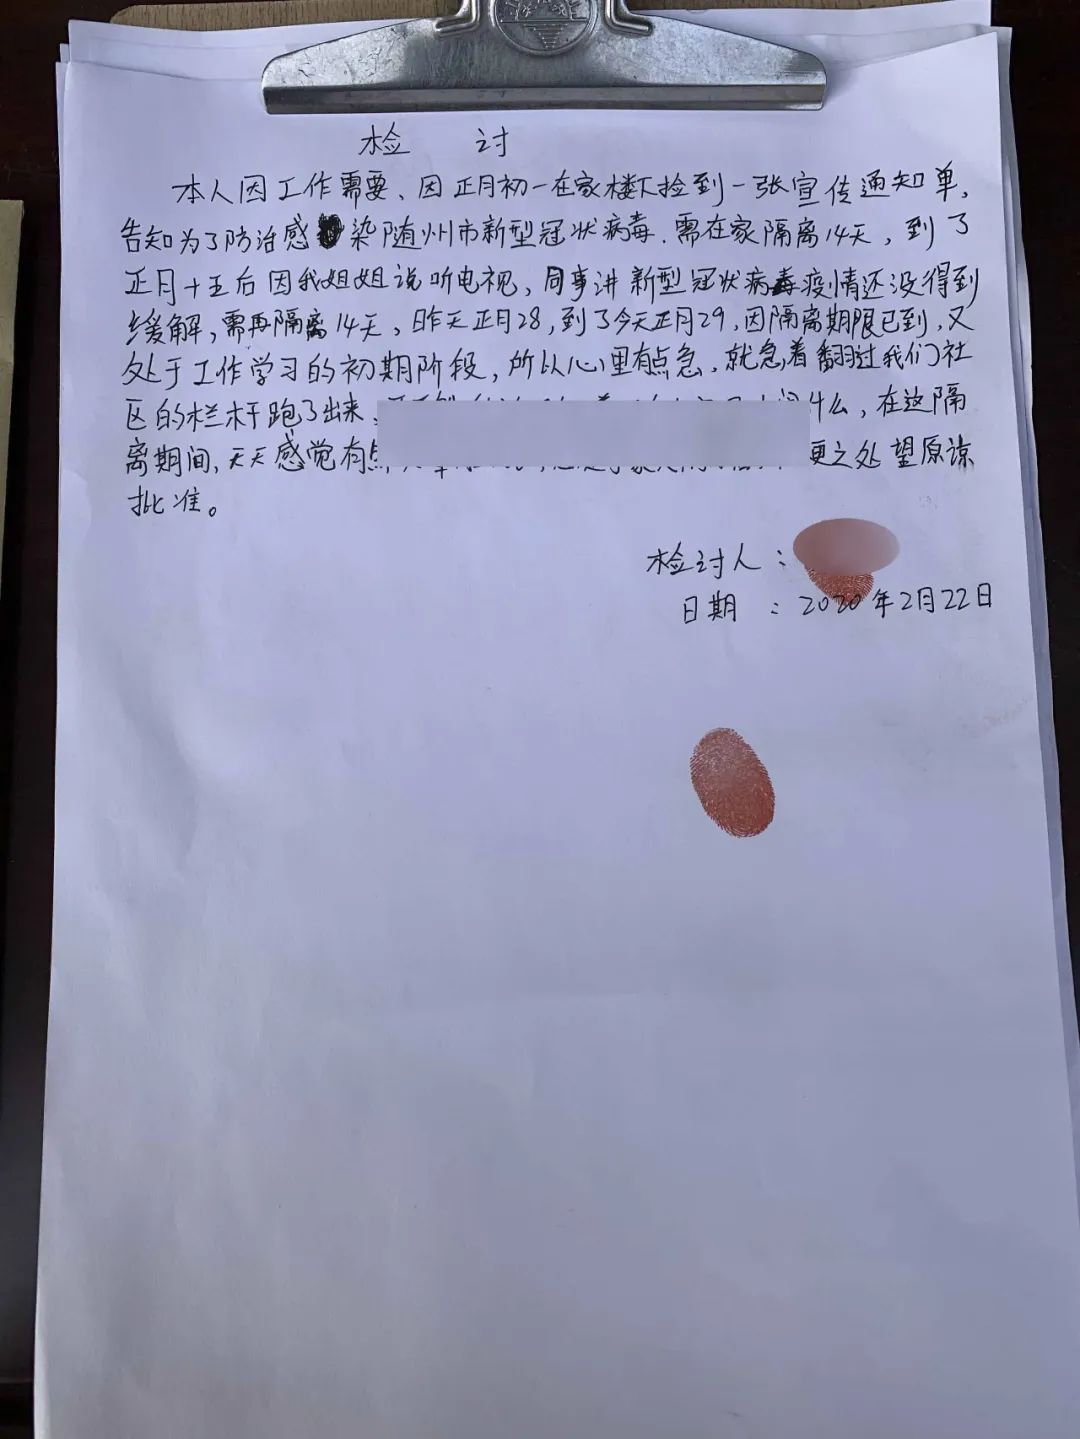 检 讨
本人因工作需要、因正月初一在家楼下捡到一张宣传通知单,
告知为了防治感染随州市新型冠状病毒.需在家隔离14天,到了
正月十五后因我姐姐说听电视,同事讲新型冠状病毒疫情还没得到
缓解,需再隔离14天,昨天正月28,到了今天正月29,因隔离期限已到,又
处于工作学习的初期阶段,所以心里有点急,就急着翻过我们社
区的栏杆跑了出来, 什么,在这隔
离期间,天天感觉有 更之处望原谅
批准。
检讨人:
日期 : 2020年2月22日